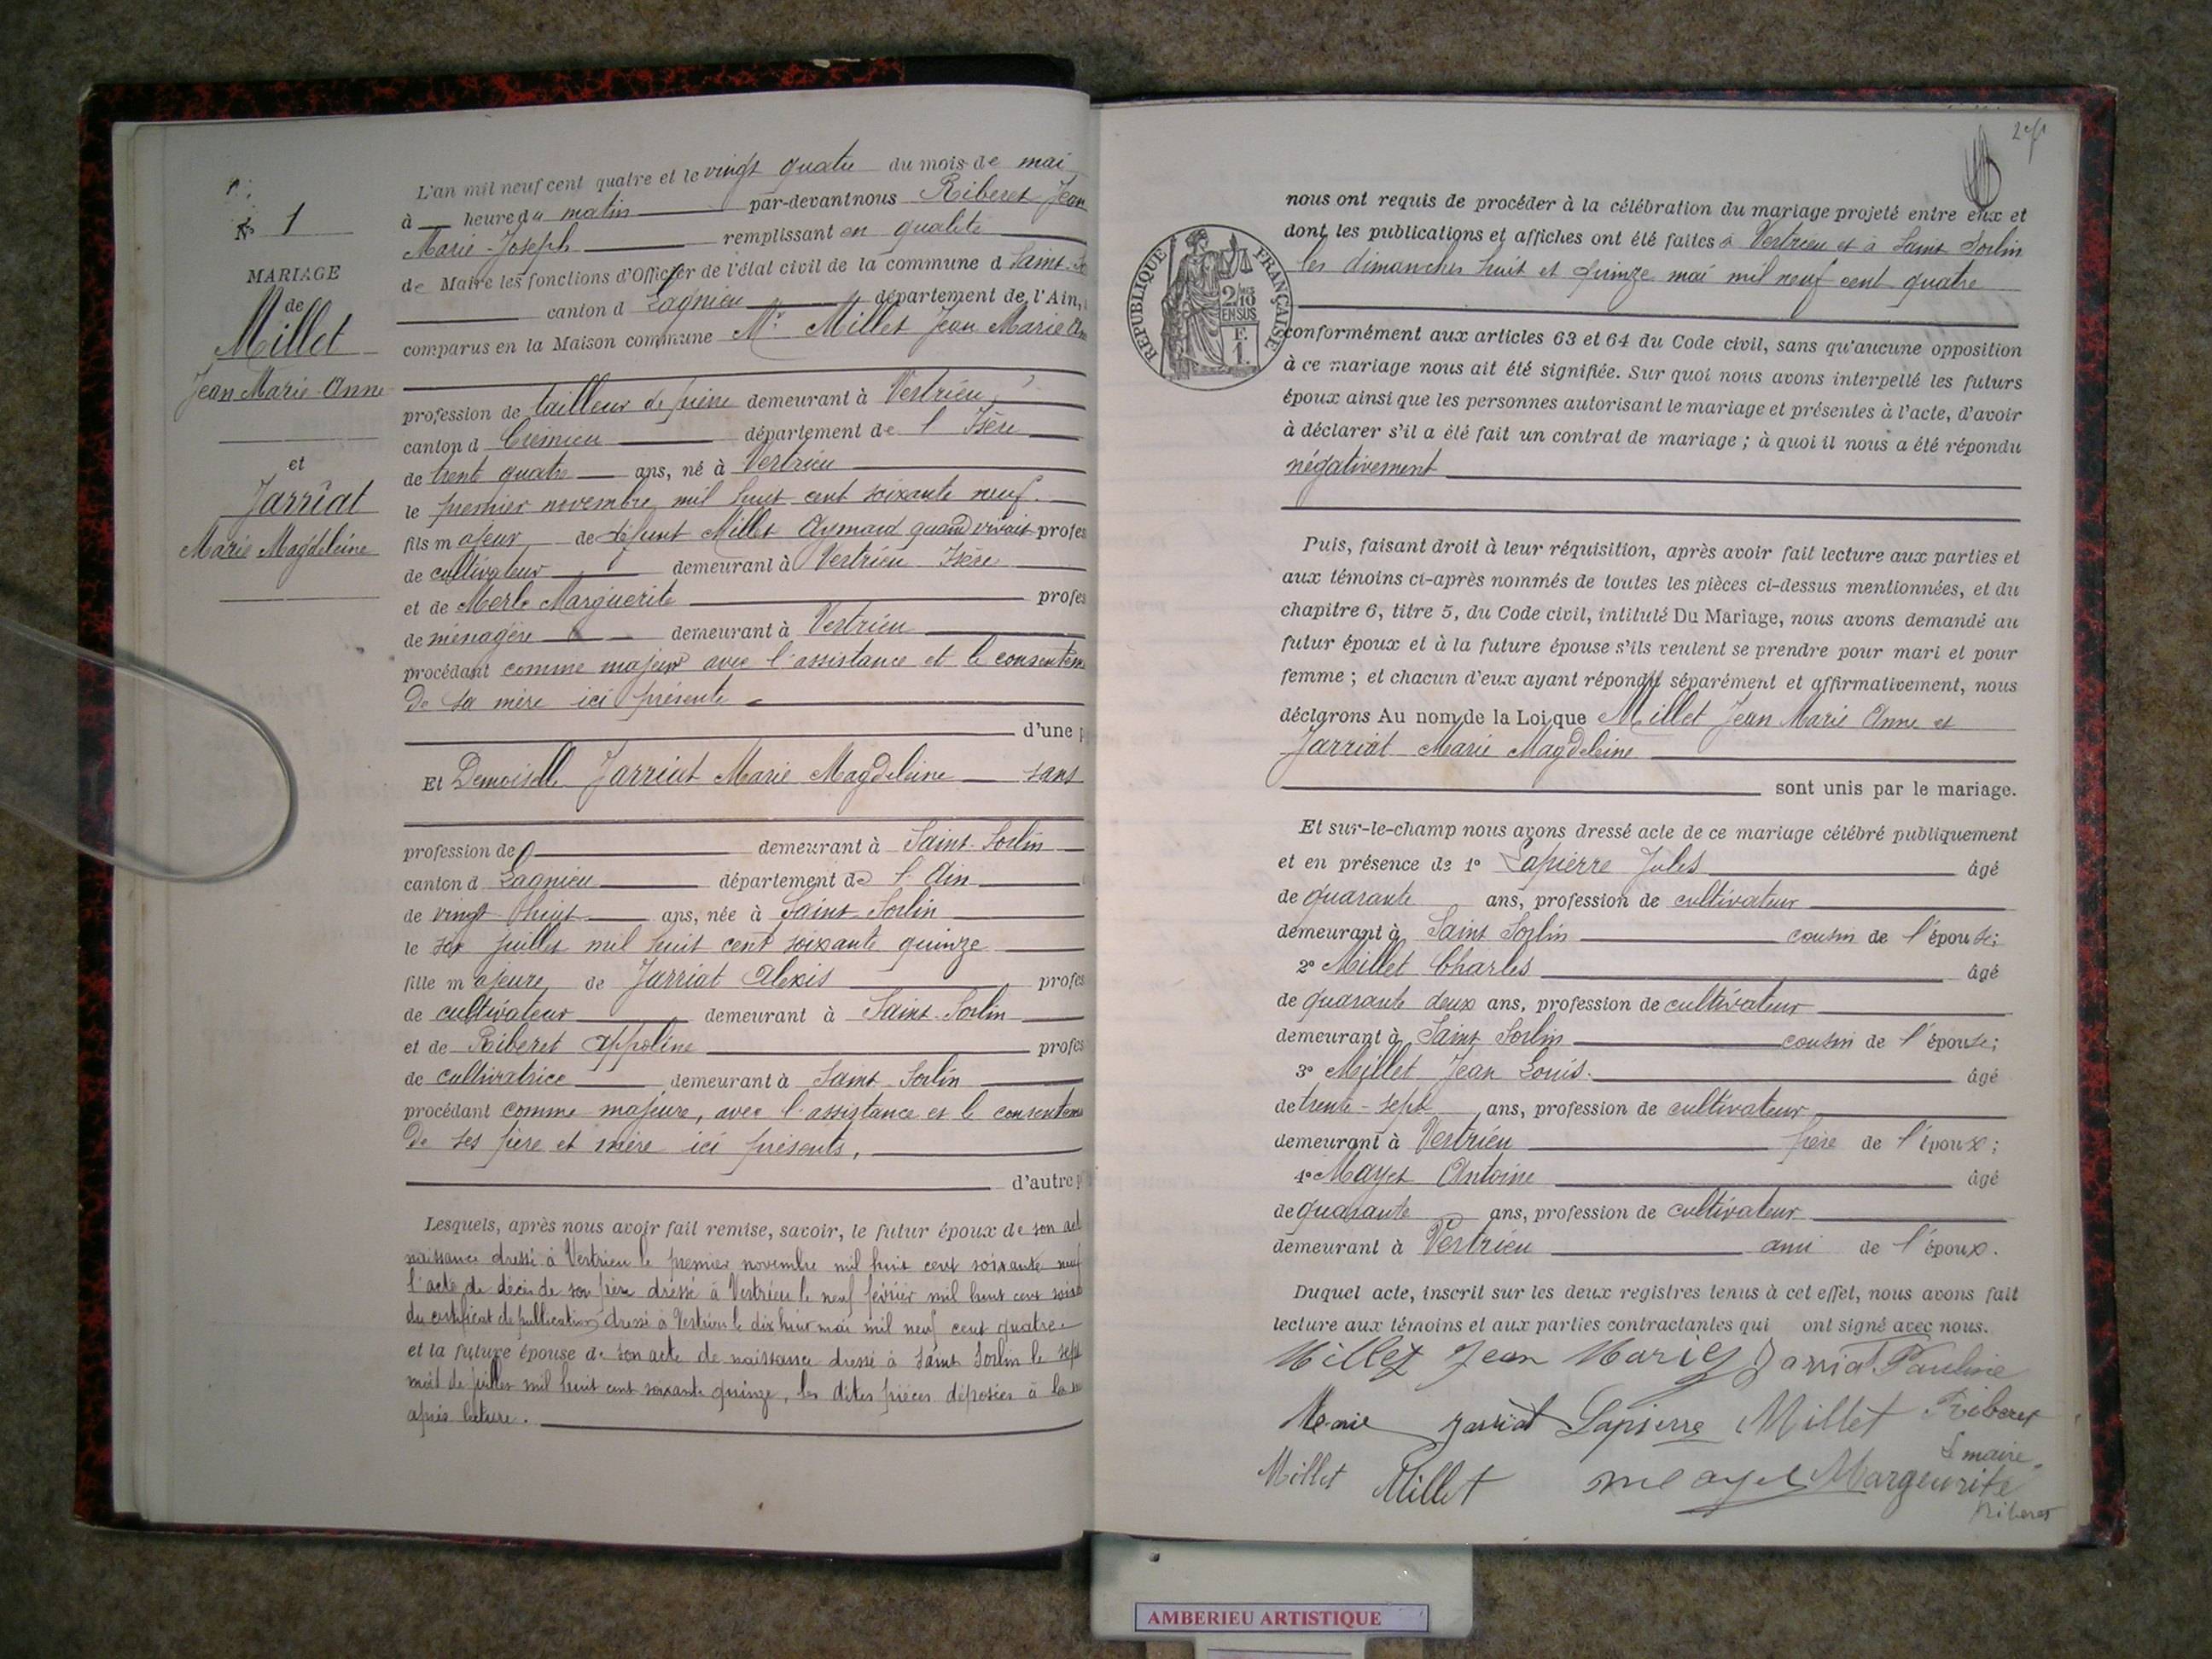 N° 1
MARIAGE
de
Millet
Jean Marie Anne
et
Jarriat
Marie Magdeleine
L'an mil neuf cent quatre et le vingt quatre du mois de mai
à heure du matin par-devant nous Riberet Jean
Marie-Joseph remplissant en qualité
de Maire les fonctions d'Officier de l'état civil de la commune d Saint-So
canton d Lagnieu département de l'Ain,
comparus en la Maison commune Mr Millet Jean Marie An
profession de tailleur de pierre demeurant à Vertrieu,
canton d Crémieu département de l'Isère
de trente quatre ans, né à Vertrieu
le premier novembre mil huit cent soixante neuf.
fils majeur de défunt Millet Aymard quand vivait profes
de cultivateur demeurant à Vertrieu Isère
et de Merle Marguerite profes
de ménagère demeurant à Vertrieu
procédant comme majeur avec l'assistance et le consentem
de sa mère ici présente
d'une p
Et Demoiselle Jarriat Marie Magdeleine sans
profession de demeurant à Saint-Sorlin
canton d Lagnieu département de l'Ain
de vingt huit ans, née à Saint-Sorlin
le juillet mil huit cent soixante quinze
fille majeure de Jarriat Alexis profes
de cultivateur demeurant à Saint-Sorlin
et de Riberet Appoline profes
de cultivatrice demeurant à Saint-Sorlin
procédant comme majeure, avec l'assistance et le consentem
de ses père et mère ici présents,
d'autre p
Lesquels, après nous avoir fait remise, savoir, le futur époux de son act
naissance dressé à Vertrieu le premier novembre mil huit cent soixante neuf
l'acte de décès de son père dressé à Vertrieu le neuf février mil huit cent soixa
du certificat de publication dressé à Vertrieu le dix huit mai mil neuf cent quatre
et la future épouse de son acte de naissance dressé à Saint Sorlin le sept
mois de juillet mil huit cent soixante quinze, les dites pièces déposées à la
après lecture.
RÉPUBLIQUE FRANÇAISE
2/10
EN SUS
F.
1.
nous ont requis de procéder à la célébration du mariage projeté entre eux et
dont les publications et affiches ont été faites à Vertrieu et à Saint Sorlin
les dimanches huit et quinze mai mil neuf cent quatre
conformément aux articles 63 et 64 du Code civil, sans qu'aucune opposition
à ce mariage nous ait été signifiée. Sur quoi nous avons interpellé les futurs
époux ainsi que les personnes autorisant le mariage et présentes à l'acte, d'avoir
à déclarer s'il a été fait un contrat de mariage ; à quoi il nous a été répondu
négativement
Puis, faisant droit à leur réquisition, après avoir fait lecture aux parties et
aux témoins ci-après nommés de toutes les pièces ci-dessus mentionnées, et du
chapitre 6, titre 5, du Code civil, intitulé Du Mariage, nous avons demandé au
futur époux et à la future épouse s'ils veulent se prendre pour mari et pour
femme ; et chacun d'eux ayant répondu séparément et affirmativement, nous
déclarons Au nom de la Loi que Millet Jean Marie Anne et
Jarriat Marie Magdeleine
sont unis par le mariage.
Et sur-le-champ nous avons dressé acte de ce mariage célébré publiquement
et en présence de 1° Lapierre Jules âgé
de quarante ans, profession de cultivateur
demeurant à Saint Sorlin cousin de l'épouse;
2° Millet Charles âgé
de quarante deux ans, profession de cultivateur
demeurant à Saint Sorlin cousin de l'épouse;
3° Millet Jean Louis. âgé
de trente-sept ans, profession de cultivateur
demeurant à Vertrieu frère de l'époux;
4° Mayet Antoine âgé
de quarante ans, profession de cultivateur
demeurant à Vertrieu ami de l'époux.
Duquel acte, inscrit sur les deux registres tenus à cet effet, nous avons fait
lecture aux témoins et aux parties contractantes qui ont signé avec nous.
Millet Jean Marie Jarriat Pauline
Marie Jarriat Lapierre Millet Riberet
le maire.
Millet Millet mayet Margeurite
Riberet
AMBERIEU ARTISTIQUE